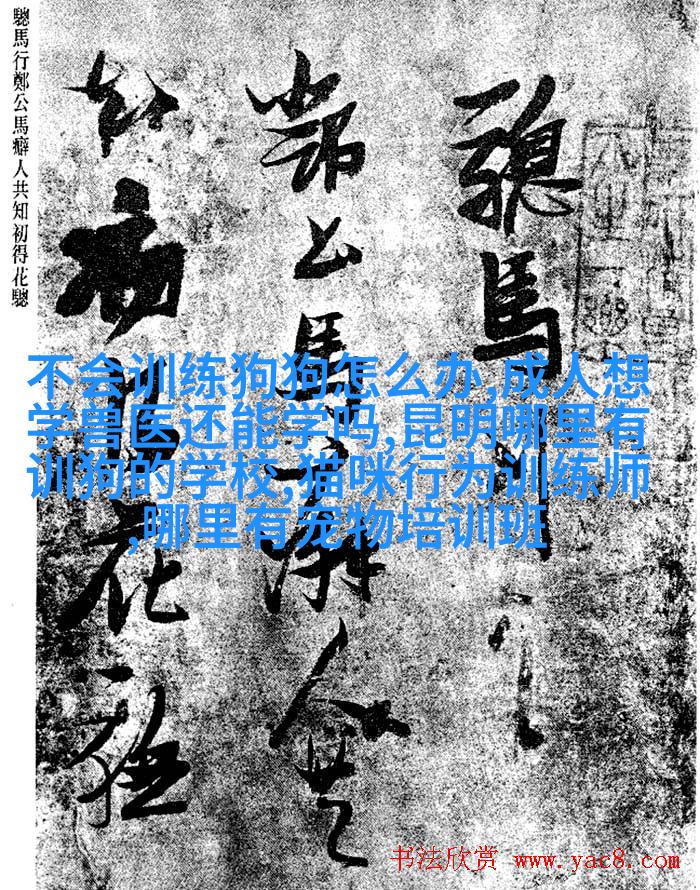 驄馬行鄭公馬癖人共知初得花驄
驄馬行
鄭公馬癖人共
知初得花驄
不会训练狗狗怎么办,成人想
学兽医还能学吗,昆明哪里有
训狗的学校,猫咪行为训练师
,哪里有宠物培训班
书法欣赏 www.yac8.com